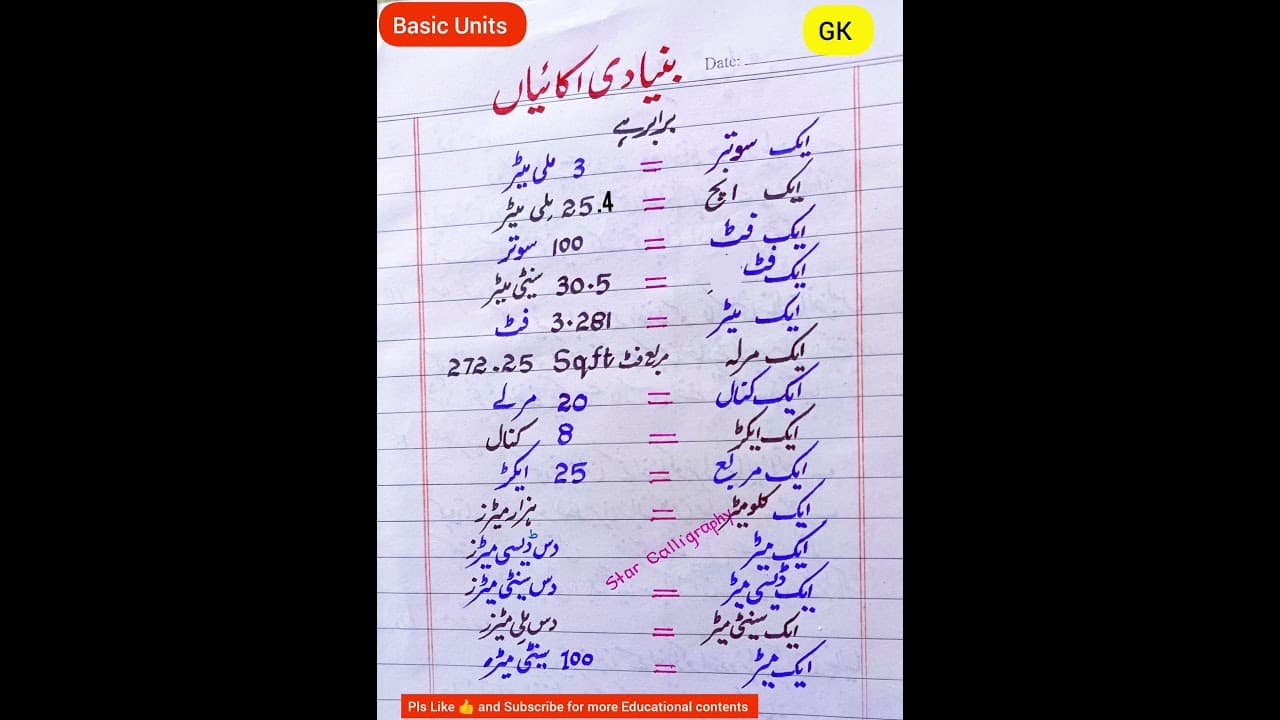 Basic Units
GK
Date:
بنیادی اکائیاں
برابر ہے
ایک سوتر = 3 ملی میٹر
ایک انچ = 25.4 ملی میٹر
ایک فٹ = 100 سوتر
ایک فٹ = 30.5 سینٹی میٹر
ایک میٹر = 3.281 فٹ
ایک مرلہ مربع فٹ 272.25 Sqft
ایک کنال = 20 مرلے
ایک ایکڑ = 8 کنال
ایک مربع = 25 ایکڑ
ایک کلومیٹر = ہزار میٹرز
ایک میٹر دس ڈیسی میٹرز
ایک ڈیسی میٹر = دس سینٹی میٹرز
ایک سینٹی میٹر = دس ملی میٹرز
ایک میٹر = 100 سینٹی میٹر
Star Calligraphy
Pls Like 👍 and Subscribe for more Educational contents